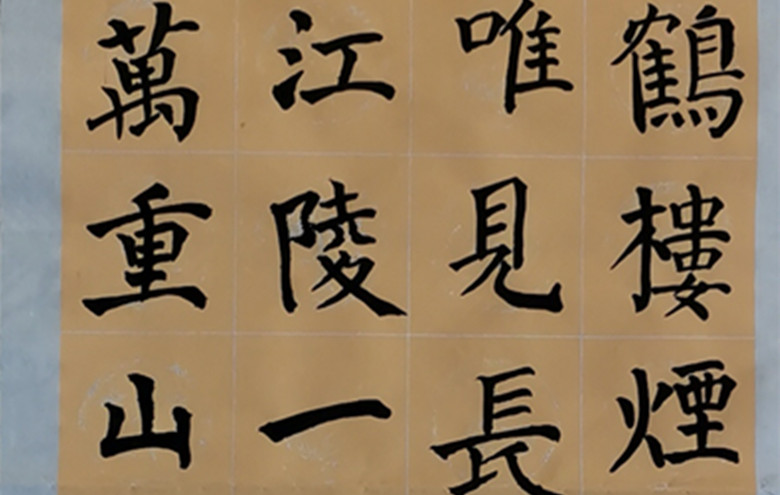 鶴樓煙
唯見長
江陵一
萬重山